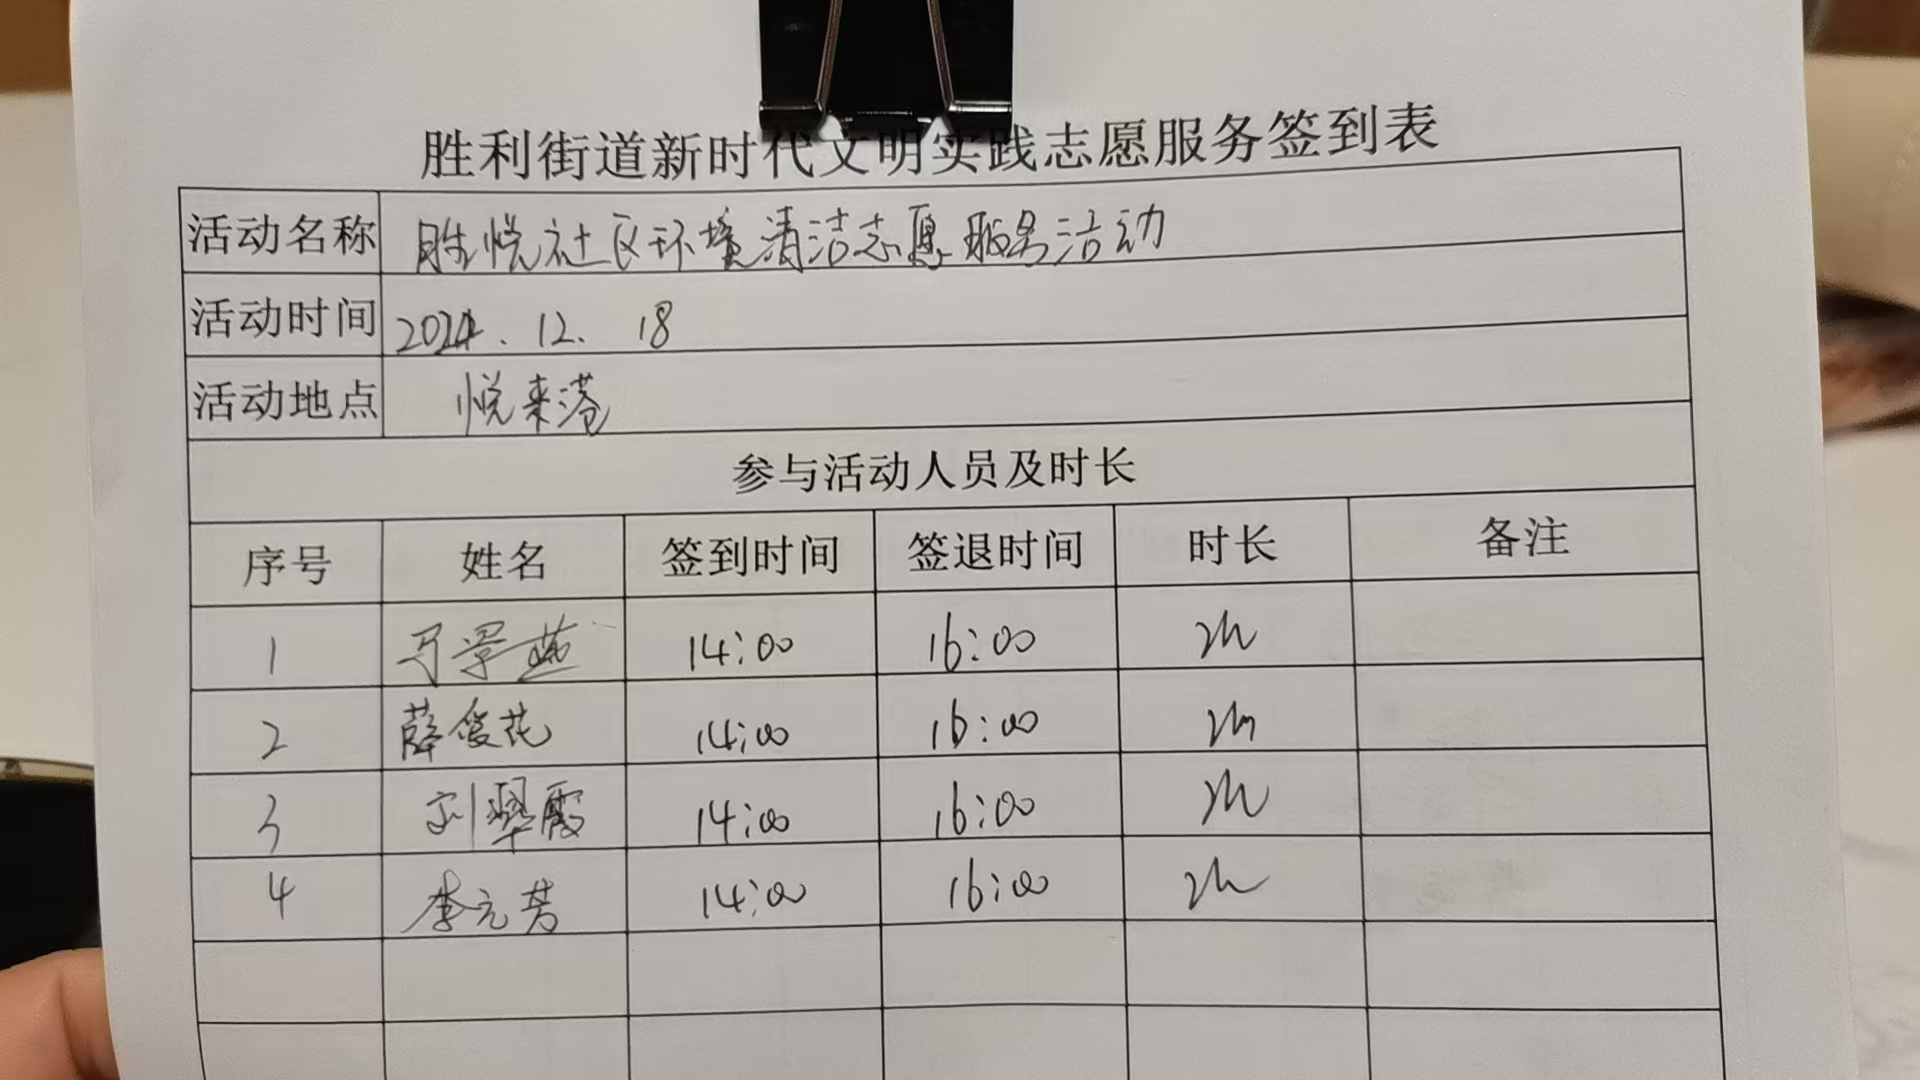 胜利街道新时代文明实践志愿服务签到表
活动名称 胜悦社区环境清洁志愿服务活动
活动时间 2024. 12. 18
活动地点 悦来港
参与活动人员及时长
序号 姓名 签到时间 签退时间 时长 备注
1 14:00 16:00 2h
2 薛俊花 14:00 16:00 2h
3 刘翠霞 14:00 16:00 2h
4 李元芳 14:00 16:00 2h